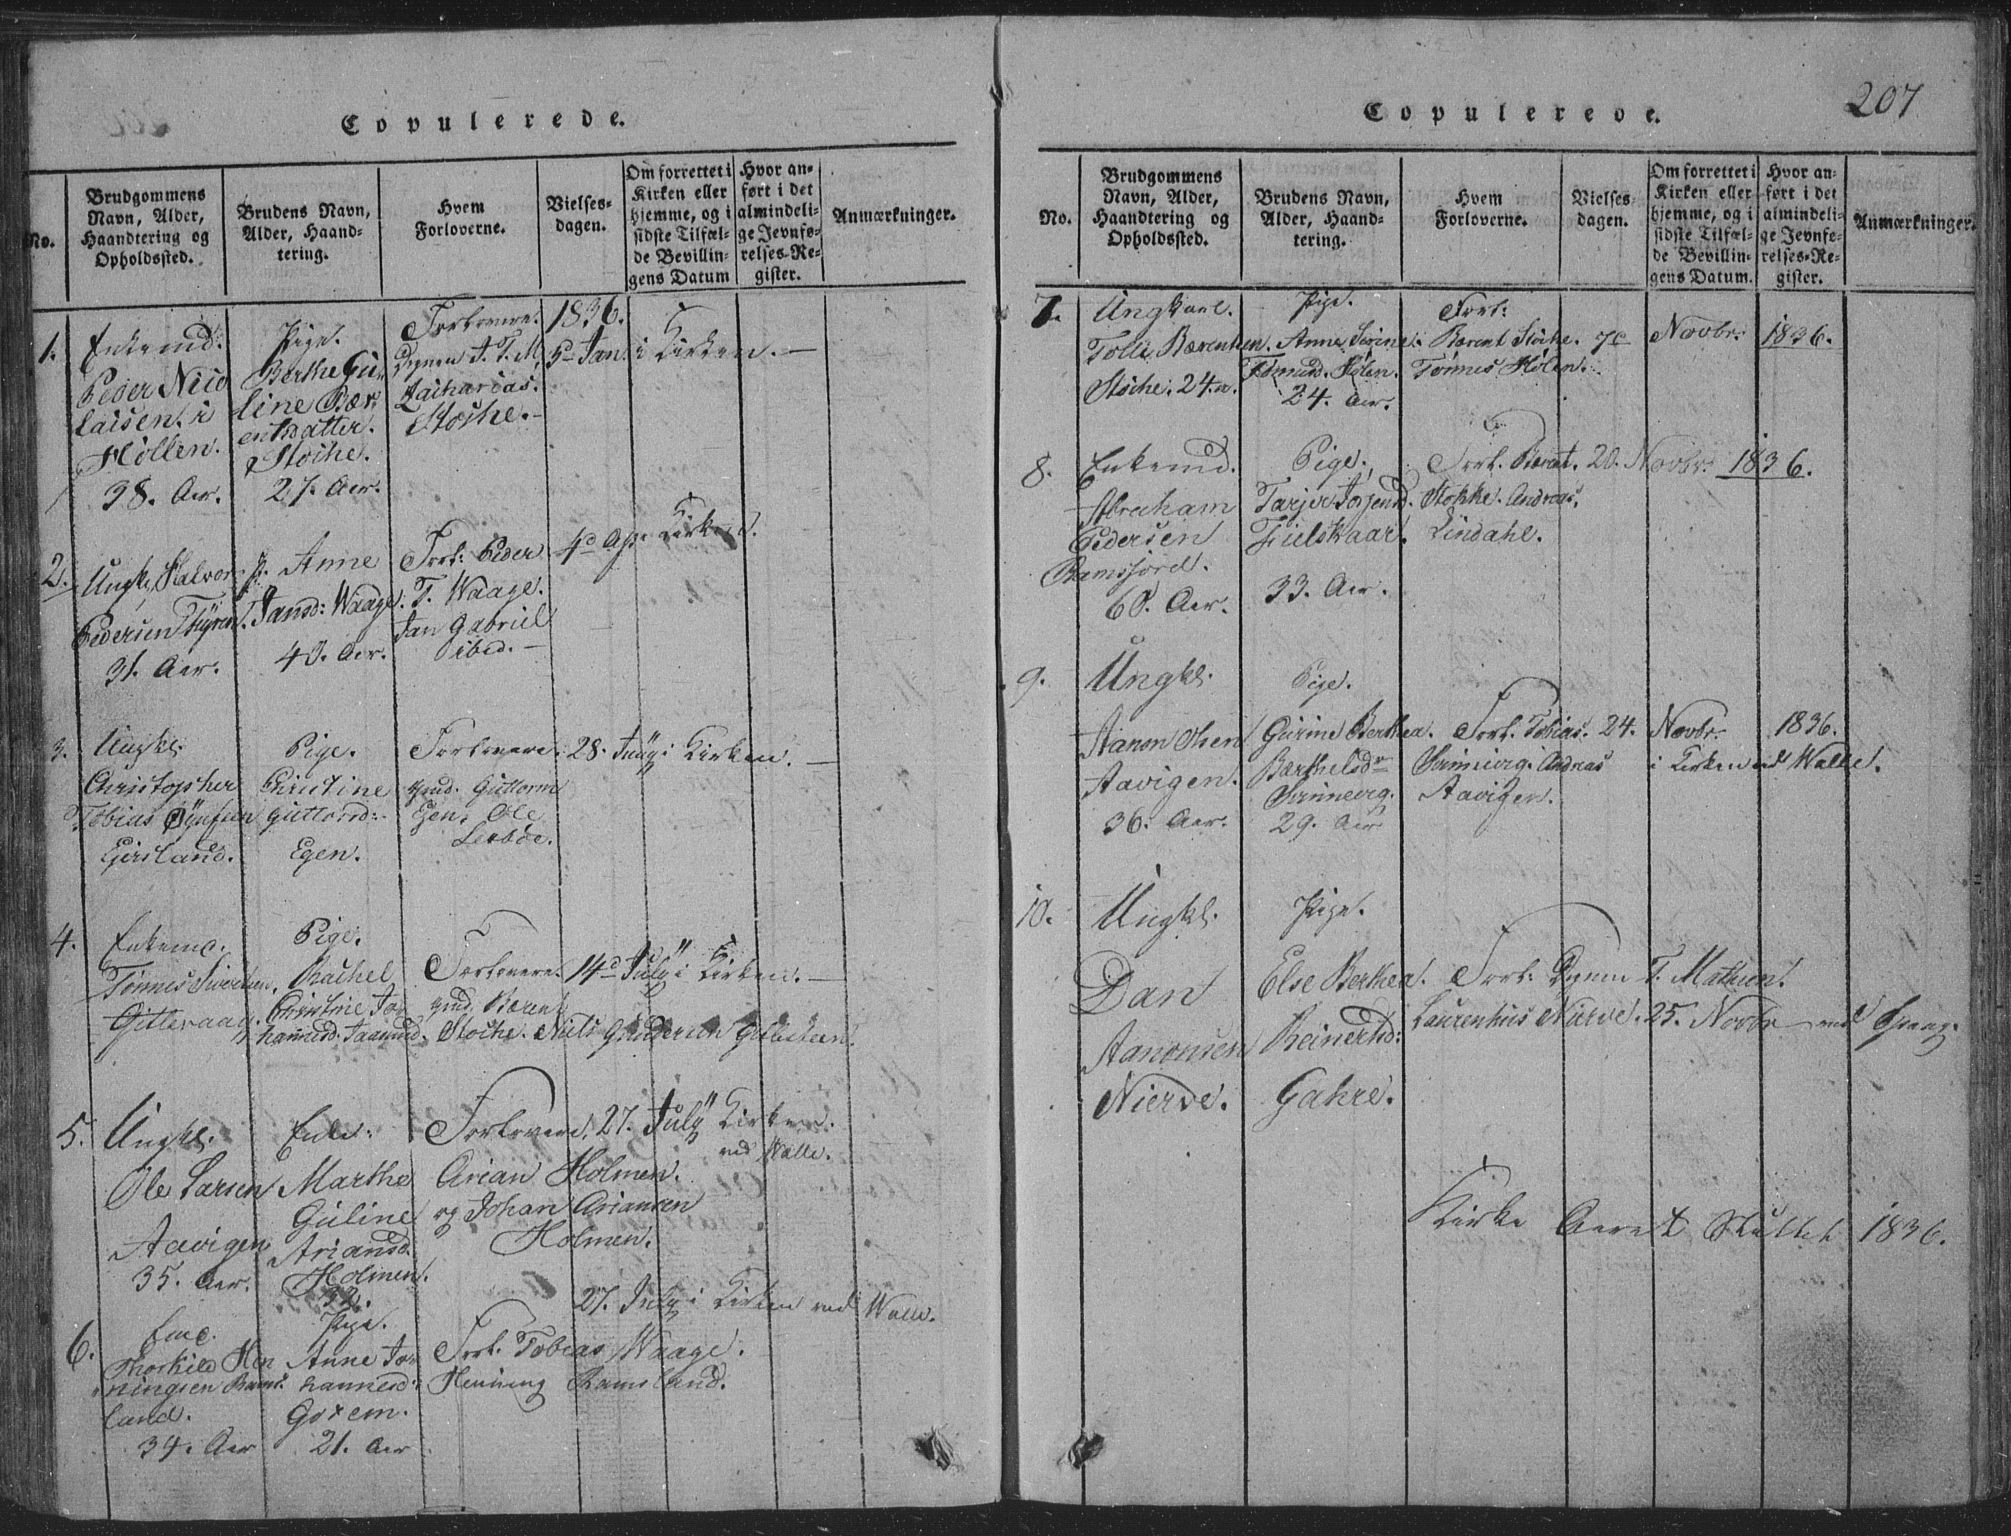 Copulerede.
No.
Brudgommens Navn, Alder, Haandtering og Opholdssted.
Brudens Navn, Alder, Haandtering.
Hvem Forloverne.
Vielsesdagen.
Om forrettet i Kirken eller hjemme, og i sidste Tilfælde Bevillingens Datum
Hvor anført i det almindelige Jevnførelses-Register.
Anmærkninger.
1.
Enkemd.
Peder Nico
laisen. i
Höllen.
38. Aar.
Pige.
Berthe Gu
line Bær
entsdatter.
Stoche.
27. Aar.
Forlovere.
Dynen J. T. M.
Zacharias.
Stoche.
1836.
5te Jan. i Kirken. —
2.
Ungk. Halvor
Pedersen
31. Aar.
P. Anne
Jansd: Waage.
40. Aar.
Forl: Peder
T. Waage.
Jan Gabriel
ibid. —
4de Ap. Kirken.
3.
Ungkl.
Christopher
Tobias
Egisland.
Pige.
Christine
Guttormd:
Egen.
Forlovere.
Guttorm
Egen, Ole
28. Juny i Kirken. —
4.
Enkemd.
Tønnes
Gittevaag.
Pige.
Rachel
Christine Jo
hannesd.
Forlovere.
Bærent
Stoche. Niels
14d July i Kirken. —
5.
Ungkl.
Ole Larsen
Aavigen
35. Aar.
Enke.
Marthe
Guline
Ariansd.
Holmen.
32.
Forlovere.
Arian Holmen.
og Johan Ariansen
Holmen.
27. July Kirken.
ved Walle.
6.
Emd.
Thorkild Hen
ningsen Rams
land.
34. Aar
Pige.
Anne Jo
hannesd:
Goxem.
21. Aar
Forl. Tobias Waage.
Henning Ramsland.
27. July i Kirken ved Walle.
207
Copulerede.
No.
Brudgommens Navn, Alder, Haandtering og Opholdssted.
Brudens Navn, Alder, Haandtering.
Hvem Forloverne.
Vielsesdagen.
Om forrettet i Kirken eller hjemme, og i sidste Tilfælde Bevillingens Datum.
Hvor anført i det almindelige Jevnførelses-Register.
Anmærkninger.
7.
Ungkarl.
Tolle Bærentsen.
Stoche. 24 a.
Pige.
Anne Serine
Tømesd. Hølen.
24. Aar.
Forl:
Bærent Stoche.
Tønnes Hølen.
7de Novbr: 1836.
8.
Enkemd.
Abraham
Pedersen
Ramsfjord.
60. Aar.
Pige.
Tarjer Torjensd.
Fielskaar.
33. Aar.
Forl. Bærent.
Stokke. Andreas.
Lindahl.
20. Novbr. 1836.
9.
Ungkl.
Aanon Olsen
Aavigen.
36. Aar.
Pige.
Gurine Berthea.
Barthelsdr
Sønnevig.
29. Aar
Forl. Tobias.
Sønnevig. Andreas
Aavigen.
24. Novbr. 1836.
i Kirken ved Walle.
10.
Ungkl.
Dan
Aanonsen
Nierve.
Pige.
Else Berthea.
Reinertsd:
Gahre.
Forl: Dynen T. Mathisen.
Laurenhus Nierve. 25. Novbr — ved
Kirke Aaret Sluttet 1836.